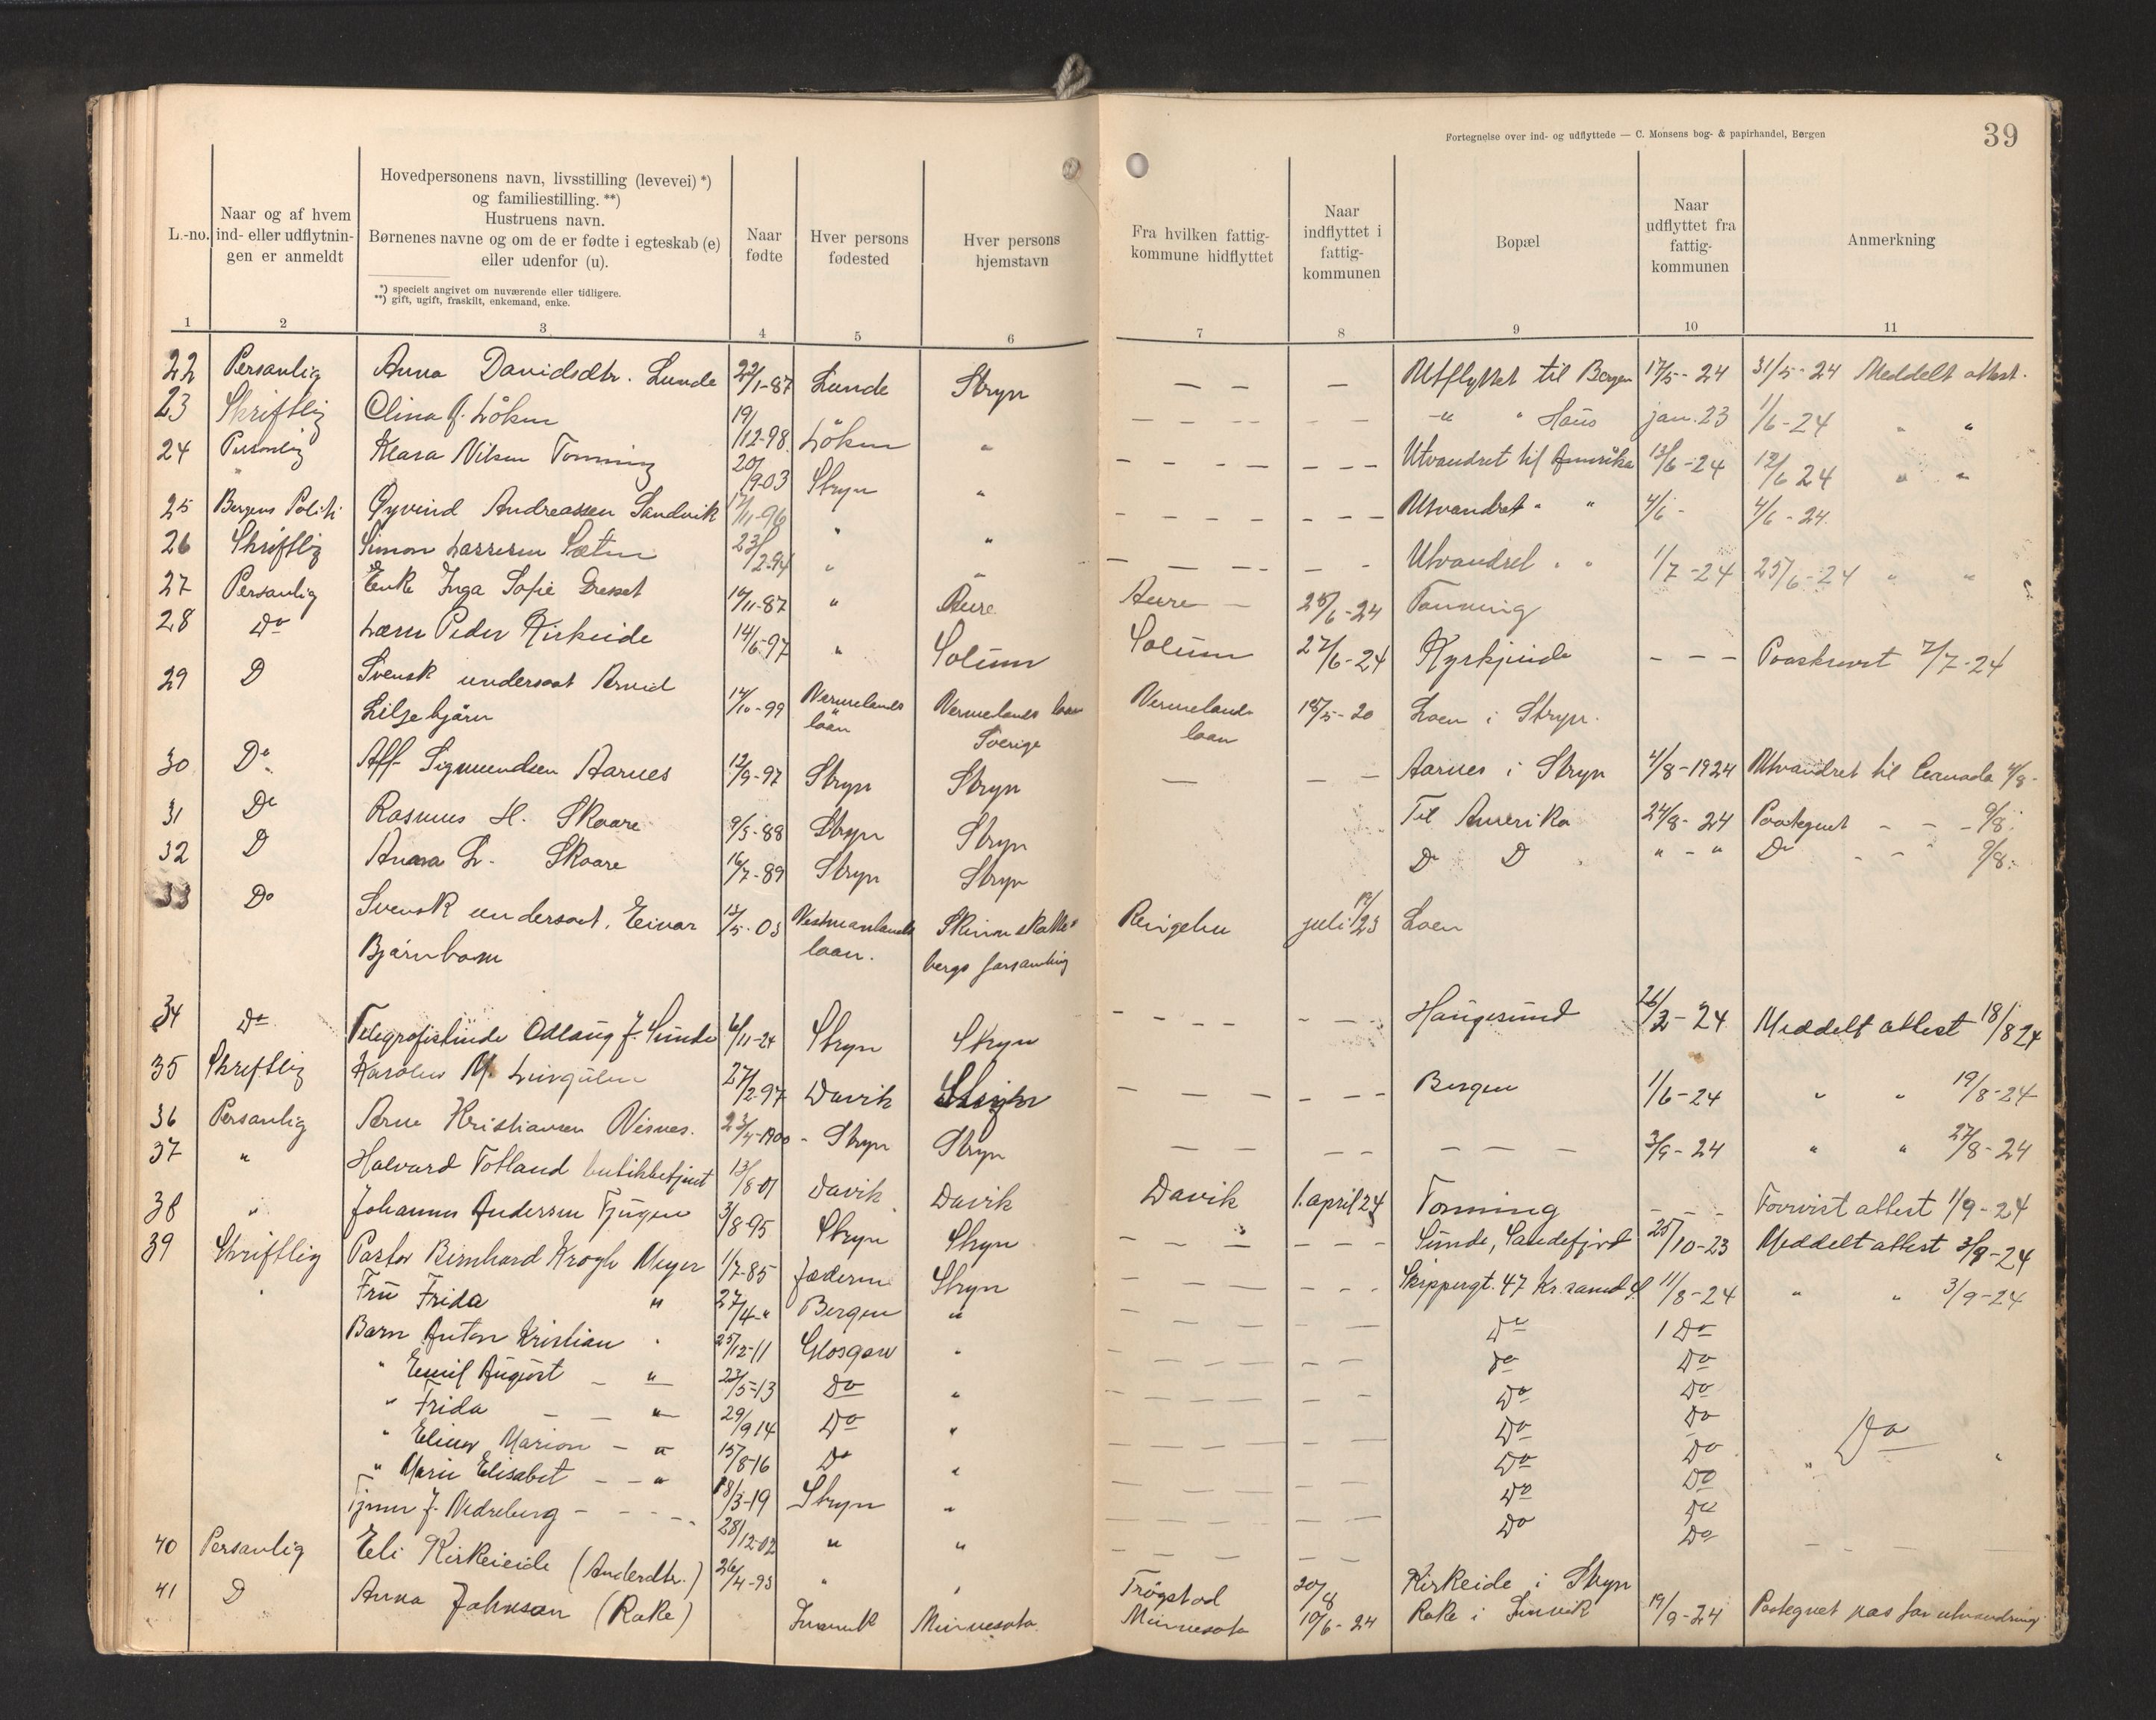 Fortegnelse over ind- og udflyttede — C. Monsens bog- & papirhandel, Bergen
39
L.-no.
Naar og af hvem ind- eller udflytnin- gen er anmeldt
Hovedpersonens navn, livsstilling (levevei) *)
og familiestilling. **)
Hustruens navn.
Børnenes navne og om de er fødte i egteskab (e)
eller udenfor (u).
*) specielt angivet om nuværende eller tidligere.
**) gift, ugift, fraskilt, enkemand, enke.
Naar fødte
Hver persons fødested
Hver persons hjemstavn
Fra hvilken fattig- kommune hidflyttet
Naar indflyttet i fattig- kommunen
Bopæl
Naar udflyttet fra fattig- kommunen
Anmerkning
1 2 3 4 5 6 7 8 9 10 11
22 Personlig Anna Davidsdtr. Lunde 22/1-87 Lunde Stryn — — — Utflyttet til Bergen 17/5-24 31/5-24 Meddelt attest.
23 Skriftlig 19/12-98 Löken " — — — -"- " Haus jan. 23 1/6-24 " "
24 Personlig Klara Nilsen Tonning 20/9-03 Stryn " — — — Utvandret til Amerika 13/6-24 12/6 24 " "
25 Bergens Politi Øyvind Andreassen Sandvik 17/11-96 " " — — — Utvandret " " 4/6 - 4/6-24.
26 Skriftlig Simon Lassesen Sæten 23/2-94 " " — — — Utvandret " " 1/7-24 25/6-24 " "
27 Personlig Enke Inga Sofie 14/11-87 " Aure Aure — 25/6-24 Tonning
28 Do Peder Kirkeide 14/6-97 " Solum Solum 27/6-24 Kyrkjeide — — — 7/7-24
29 D Svensk undersaat Arvid
Liljebjörn 14/10-99 Vermelands laän Vermelands laan Sverige Vermelands laan 15/5-20 Loen i Stryn.
30 Do Alf Sigmundsen Aarnes 12/9-97 Stryn Stryn — — — Aarnes i Stryn 4/8-1924 Utvandret til Canada 4/8-
31 Do Rasmus H. Skaare 9/3-88 Stryn Stryn Til Amerika 24/8-24 Paategnet - - - 9/8.
32 D Anna L. Skaare 16/7-89 Stryn Stryn D D " - " Do - - 9/8.
33 Do Svensk undersaat, Einar
Björnbom 12/5-03 Vestmanlands laan. Skinnskatte- bergs forsamling Ringebu juli 23 Loen
34 Do Telegrafistinde Odlaug J. Sunde 6/11-24 Stryn Stryn — — — Haugesund 26/2-24 Meddelt attest 18/8 24
35 Skriftlig 27/2-97 Davik Stryn — — — Bergen 1/6-24 " " 19/8-24
36 Personlig Arne Kristiansen Visnes. 23/4-1900 - Stryn Stryn — — — — — — 3/9-24 " " 27/8-24
37 " Halvard Totland butikbetjent 13/8-01 Davik Davik Davik 1. april 24 Tonning - - - Forevist attest 1/9-24
38 " Johannes Andersen Tjugen 3/8-95 Stryn Stryn — — — Sunde, Sandefjord 25/10-23 Meddelt attest 3/9-24
39 Skriftlig Pastor Bernhard Krogh Meyer 1/7-85 Jæderen Stryn — — — Skippergt. 47 Kr.sand S. 11/8-24 " " 3/9-24
Fru Frida " 27/4-" Bergen " — — — Do 1 Do
Barn Anton Kristian " 25/12-11 Glosgow " — — — Do Do
" Emil August - " 23/5-13 Do " — — — Do Do
" Frida - - " 29/9 14 Do " — — — Do Do
" Elinor Marion - " 15/8-16 Do " — — — Do Do " Do "
" Marie Elisabet - - " 18/3-19 Stryn " — — — Do Do
Tjener J. Nedreberg - - - - 28/12-02 " " — — — Do Do
40 Personlig Eli Kirkeieide (Andersdtr.) 26/4-93 " " Trögstad 20/8 Kirkeide i Stryn
41 D Anna Johnson (Rake) Minnesota. Minnesota 10/6-24 Rake i Innvik 19/9-24 Paategnet pas for utvandring